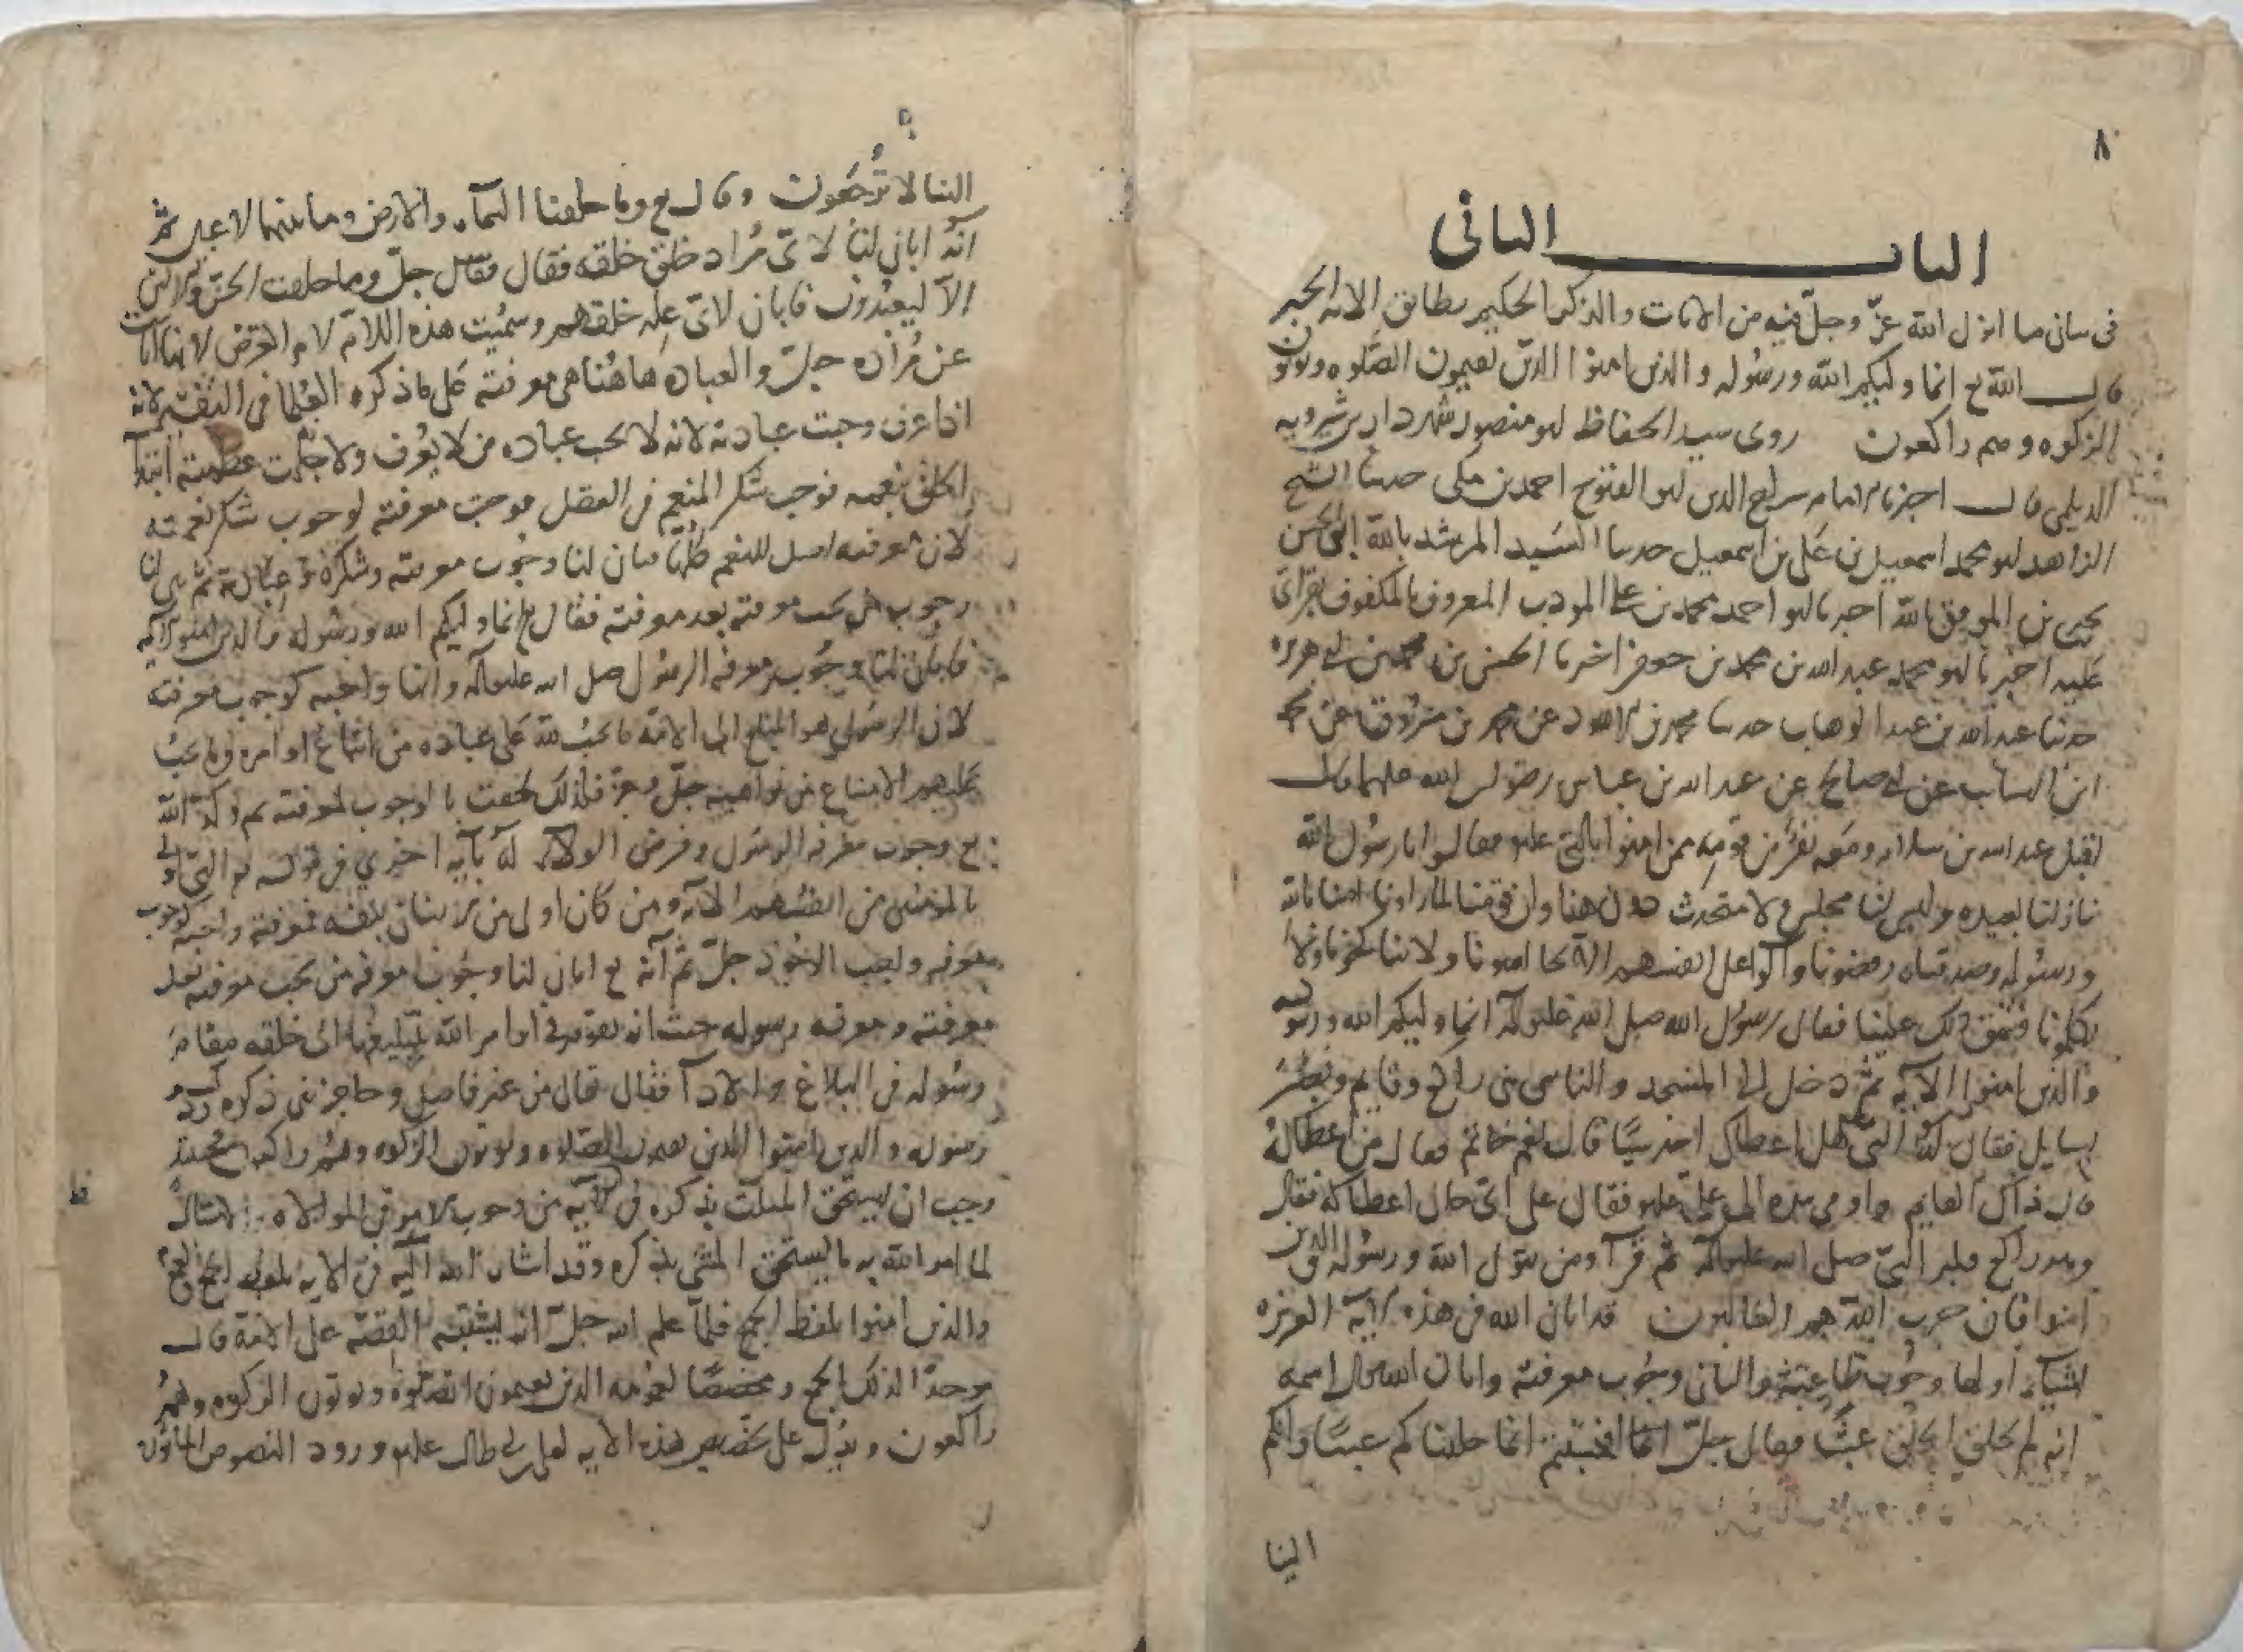 ٨
الباب الثاني
في بيان ما انزل الله عز وجل فيه من الايات والذكر الحكيم يطابق الاثر الخبر
قال الله تع انما وليكم الله ورسوله والذين امنوا الذين يقيمون الصلوة ويوتون
الزكوة وهم راكعون روى سيد الحفاظ ابو منصور شهردار بن شيرويه
الديلمي قال اخبرنا الامام سراج الدين ابو الفتوح احمد بن مكي حدثنا الشيخ
الزاهد ابو محمد اسمعيل بن علي بن اسمعيل حدثنا السيد المرشد بالله ابي الحسن
يحيى بن الموفق بالله اخبرنا ابو احمد محمد بن علي المودب المعروف بالمكفوف بقراتي
عليه اخبرنا ابو محمد عبد الله بن محمد بن جعفر اخبرنا الحسن بن محمد بن ابي هريرة
حدثنا عبد الله بن عبد الوهاب حدثنا محمد بن الاسود عن محمد بن مروان عن محمد
ابن السايب عن ابي صالح عن عبد الله بن عباس رضوان الله عليهما قال
اقبل عبد الله بن سلام ومعه نفر من قومه ممن امنوا بالنبي عليه فقالوا يا رسول الله
منازلنا بعيده وليس لنا مجلس ولا متحدث دون هنا وان قومنا لما راونا امنا بالله
ورسوله وصدقناه رفضونا وآلوا على انفسهم الا يجالسونا ولا يناكحونا ولا
يكلمونا فشق ذلك علينا فقال رسول الله صلى الله عليه وآله انما وليكم الله ورسوله
والذين امنوا الاية ثم دخل الى المسجد والناس بين راكع وقايم وبصر
بسايل فقال له النبي هل اعطاك احد شيا قال نعم خاتم فقال من اعطاكه
قال ذاك القايم واومى بيده الى علي عليه فقال على اي حال اعطاكه فقال
وهو راكع فكبر النبي صلى الله عليه وآله ثم قرآ ومن يتول الله ورسوله والذين
امنوا فان حزب الله هم الغالبون قد ابان الله في هذه الاية العزيزة
اشياء اولها وجوب طاعته والثاني وجوب معرفته وابان الله تعالى اسمه
انه لم يخلق الخلق عبثا فقال جل افحسبتم انما خلقناكم عبثا وانكم
الينا
٩
الينا لا ترجعون وقال تع وما خلقنا السماء والارض وما بينهما لاعبين ثم
انه ابان لنا لاي مراد خلق خلقه فقال جل وما خلقت الجن والانس
الا ليعبدون فابان لاي علة خلقهم وسميت هذه اللام لام الغرض لانها ابانت
عن مراده جل والعبادة هاهنا هي معرفته على ما ذكره العلما في التفسير لانه
اذا عرف وجبت عبادته لانه لا يجب عبادة من لا يعرف ولا جلت عظمته ابتدا
الخلق بنعمه فوجب شكر المنعم في العقل فوجبت معرفته لوجوب شكر نعمته
لان معرفته اصل للنعم كلها فبان لنا وجوب معرفته وشكره وعبادته ثم بين لنا
وجوب من يجب معرفته بعد معرفته فقال تع انما وليكم الله ورسوله والذين امنوا الاية
فابان لنا وجوب معرفة الرسول صلى الله عليه وآله وانها واجبة كوجوب معرفته
لان الرسول هو المبلغ الى الامة ما يجب لله على عباده من اتباع اوامره وما يجب
عليهم الامتناع من نواهيه جل وعز فلذلك لحقت بالوجوب لمعرفته ثم اكد الله
تع وجوب معرفة الرسول وفرض الولاء له بآية اخرى في قوله تع النبي اولى
بالمؤمنين من انفسهم الآية ومن كان اولى من الانسان بنفسه فمعرفته واجبة كوجوب
معرفة واجب الوجود جل ثم آنه تع ابان لنا وجوب معرفة من يجب معرفته بعد
معرفته ومعرفة رسوله حيث انه يقوم في اوامر الله بتبليغها الى خلقه مقام
رسوله في البلاغ والادآ فقال من غير فاصل وحاجز بين ذكره وذكر
رسوله والذين امنوا الذين يقيمون الصلوة ويوتون الزكوة وهم راكعون
وجب ان يستحق المثلث بذكره في الاية من وجوب الامر في الموالاة والامتثال
لما امر الله به ما يستحق المثنى بذكره وقد اشار الله اليه في الاية بلفظ الجمع
والذين امنوا بلفظ الجمع فلما علم الله جل انه يشتبه القصة على الامة قال
موحدا لذلك الجمع ومخصصا لعمومه الذين يقيمون الصلوة ويوتون الزكوة وهم
راكعون ويدل على تخصيص هذه الاية لعلي بن ابي طالب عليه ورود النصوص